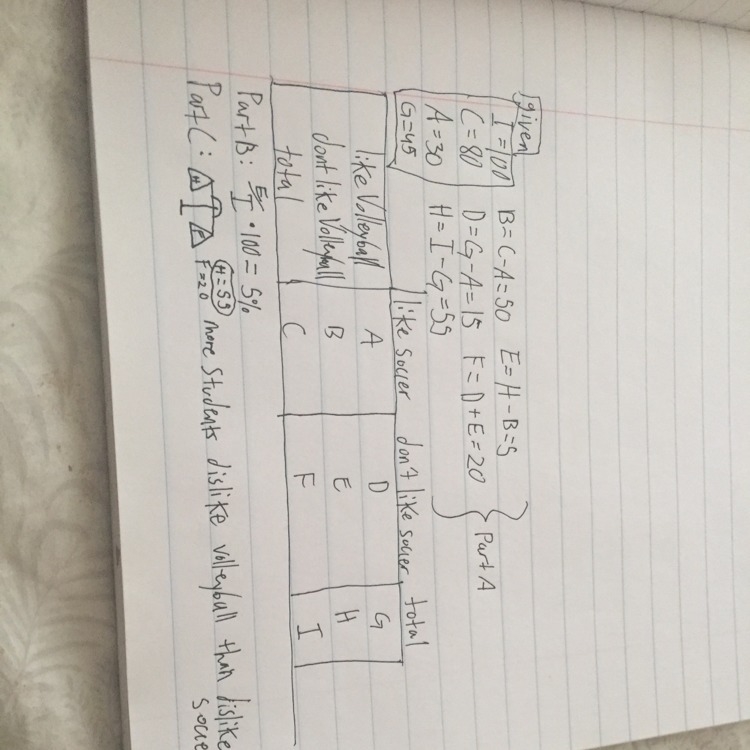 given
I=100 B=C-A=50 E=H-B=5
C=80 D=G-A=15 F=D+E=20 } Part A
A=30 H=I-G=55
G=45
like soccer don't like soccer total
like Volleyball A D G
dont like Volleyball B E H
total C F I
Part B: E/I · 100 = 5%
Part C: H=55 more students dislike volleyball than dislike
F=20 socce